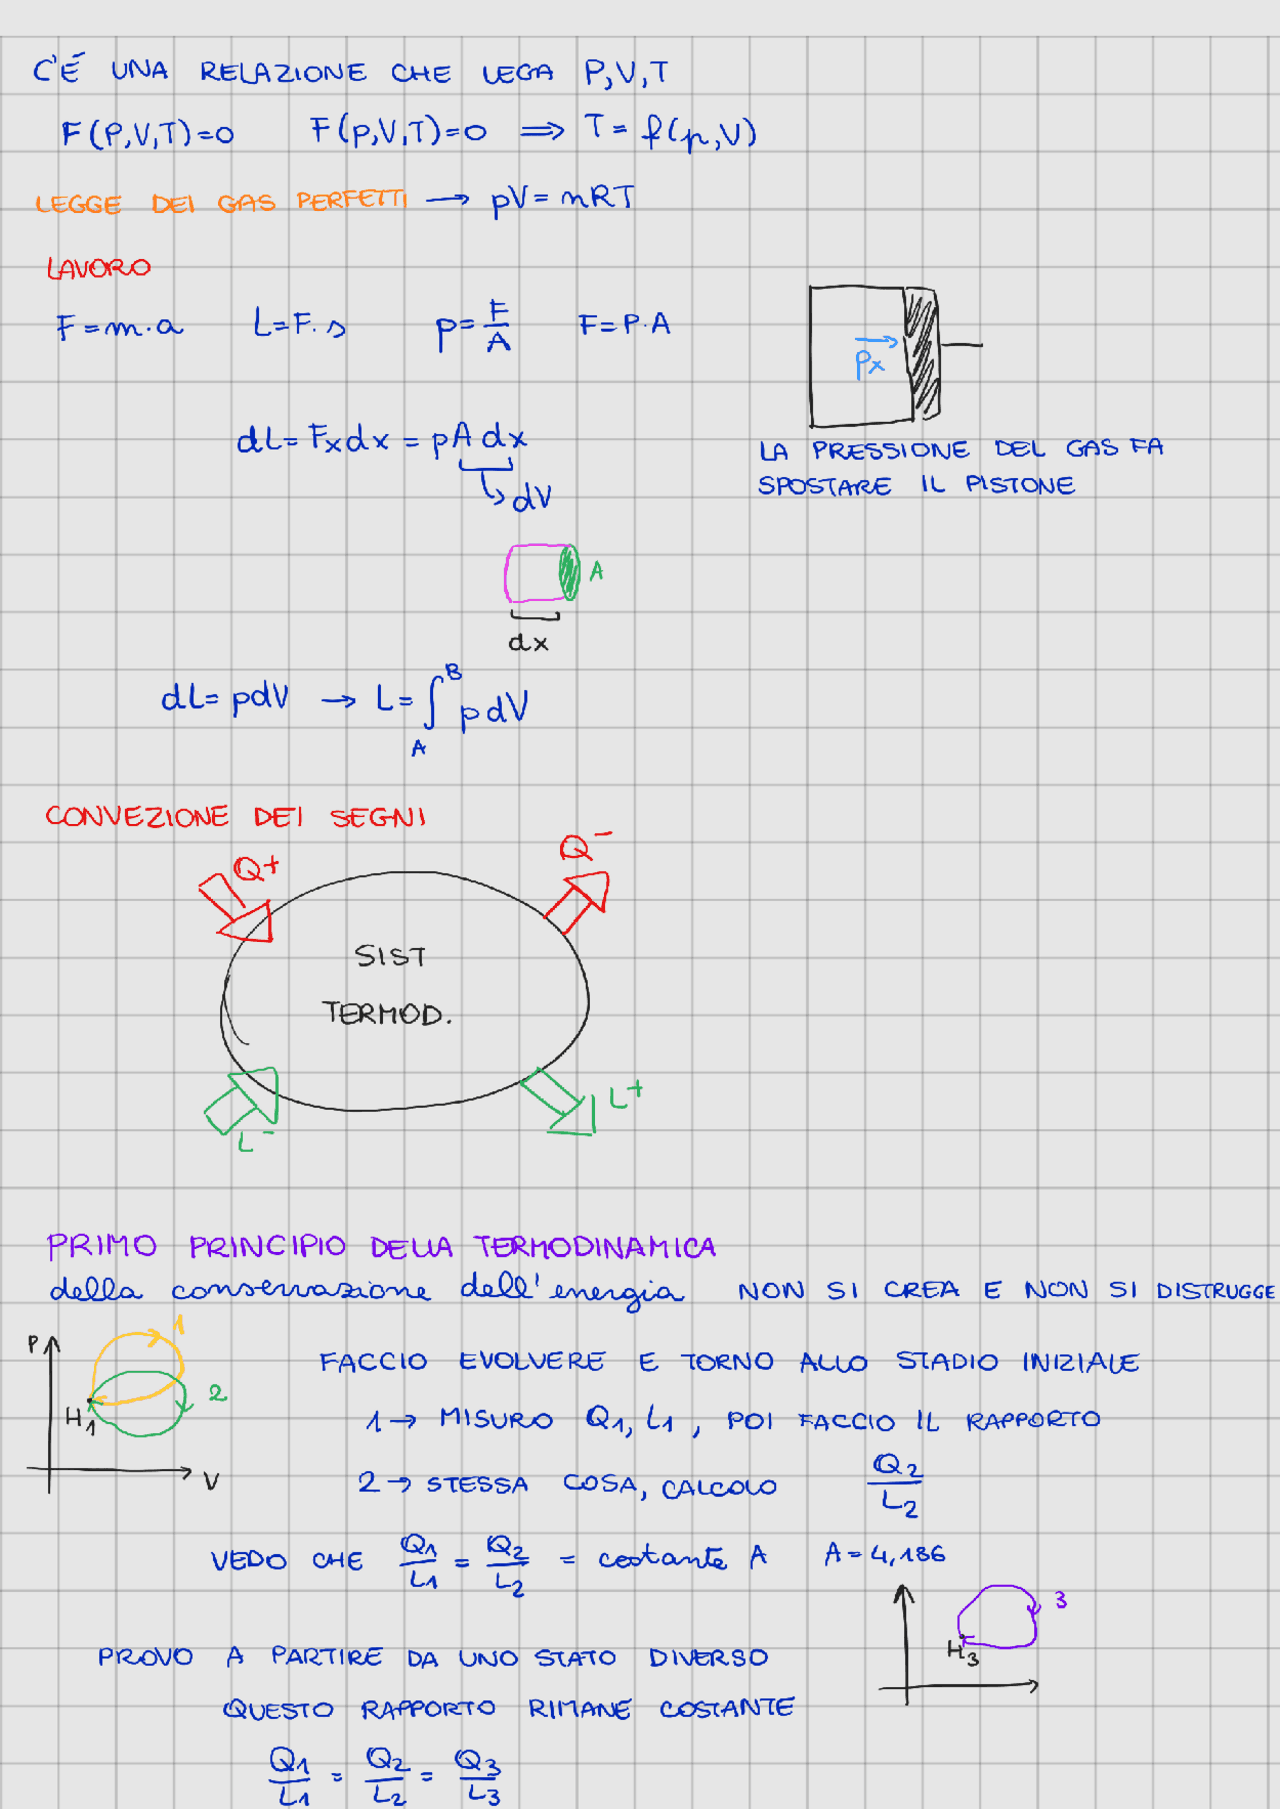 C'È UNA RELAZIONE CHE LEGA P,V,T
F(P,V,T)=0 F(p,V,T)=0 ⟹ T = f(p,V)
LEGGE DEI GAS PERFETTI → pV = nRT
LAVORO
F = m·a L=F·s p=F/A F=P·A
Px
LA PRESSIONE DEL GAS FA
SPOSTARE IL PISTONE
dL= Fxdx = pA dx
↳ dV
A
dx
dL= pdV → L = ∫_A^B p dV
CONVEZIONE DEI SEGNI
Q+ Q-
SIST
TERMOD.
L- L+
PRIMO PRINCIPIO DELLA TERMODINAMICA
della conservazione dell'energia NON SI CREA E NON SI DISTRUGGE
P 1
2
H1
V
FACCIO EVOLVERE E TORNO ALLO STADIO INIZIALE
1→ MISURO Q1, L1, POI FACCIO IL RAPPORTO
2→ STESSA COSA, CALCOLO Q2/L2
VEDO CHE Q1/L1 = Q2/L2 = costante A A=4,186
3
H3
PROVO A PARTIRE DA UNO STATO DIVERSO
QUESTO RAPPORTO RIMANE COSTANTE
Q1/L1 = Q2/L2 = Q3/L3